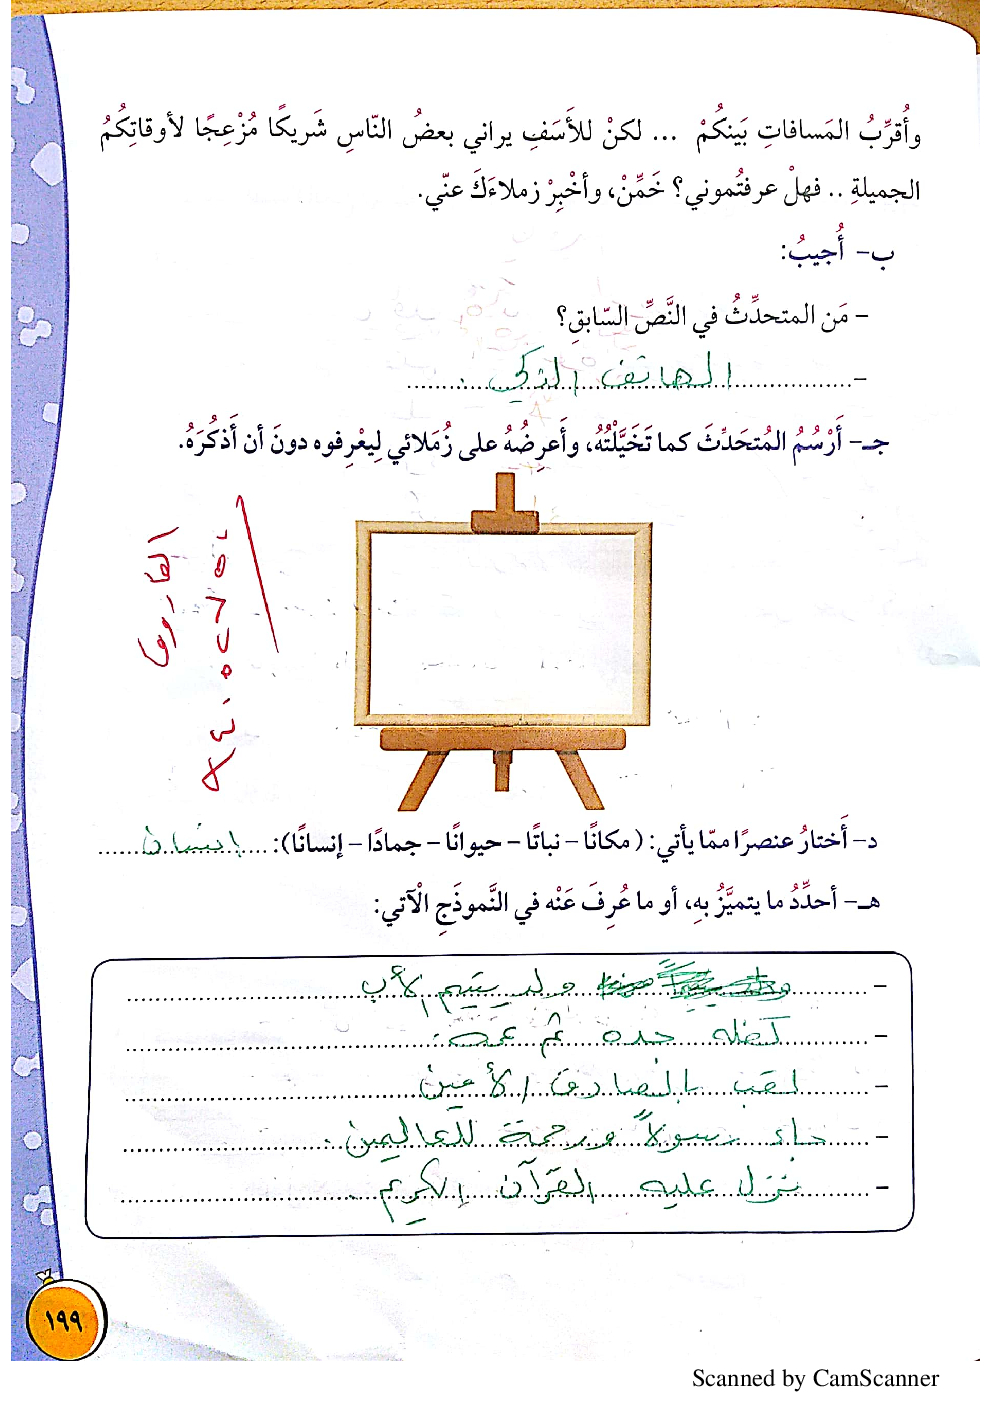 وأُقرِّبُ المَسافاتِ بَينكُمْ ... لكنْ للأسَفِ يراني بعضُ النّاسِ شَريكًا مُزْعِجًا لأوقاتِكُمُ
الجميلةِ .. فهلْ عرفتُموني؟ خَمِّنْ، وأخْبِرْ زملاءَكَ عنّي.
ب- أُجيبُ:
- مَن المتحدِّثُ في النَّصِّ السّابقِ؟
- الهاتف الذكي.
جـ- أَرْسُمُ المُتحَدِّثَ كما تَخَيَّلْتُهُ، وأَعرِضُهُ على زُمَلائي لِيعْرِفوه دونَ أن أَذكُرَهُ.
الفاروق
د- أَختارُ عنصرًا ممّا يأتي: (مكانًا - نباتًا - حيوانًا - جمادًا - إنسانًا): إنسان
هـ- أحدِّدُ ما يتميَّزُ بهِ، أو ما عُرِفَ عَنْه في النَّموذَجِ الْآتي:
- ولد يتيم الأب
- كفله جده ثم عمه.
- لقب بالصادق الأمين
- جاء رسولاً ورحمة للعالمين.
- نزل عليه القرآن الكريم.
١٩٩
Scanned by CamScanner